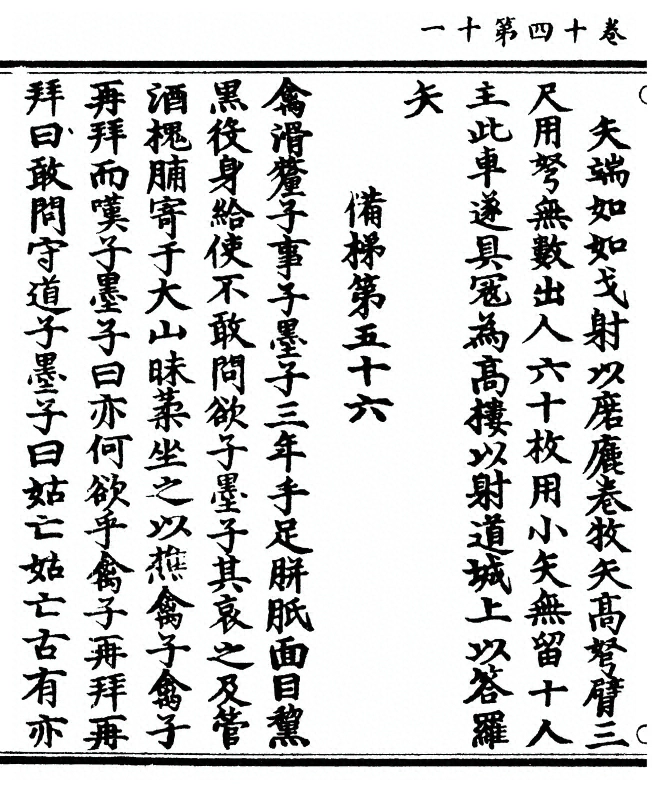 卷十四第十一
矢端如如戈射以磨鹿卷牧矢高弩臂三
尺用弩無數出人六十枚用小矢無留十人
主此車遂具冦為高樓以射道城上以答羅
矢
備梯第五十六
禽滑釐子事子墨子三年手足胼胝面目黧
黒役身給使不敢問欲子墨子其哀之及管
酒槐脯寄于大山昧葇坐之以樵禽子禽子
再拜而嘆子墨子曰亦何欲乎禽子再拜再
拜曰敢問守道子墨子曰姑亡姑亡古有亦